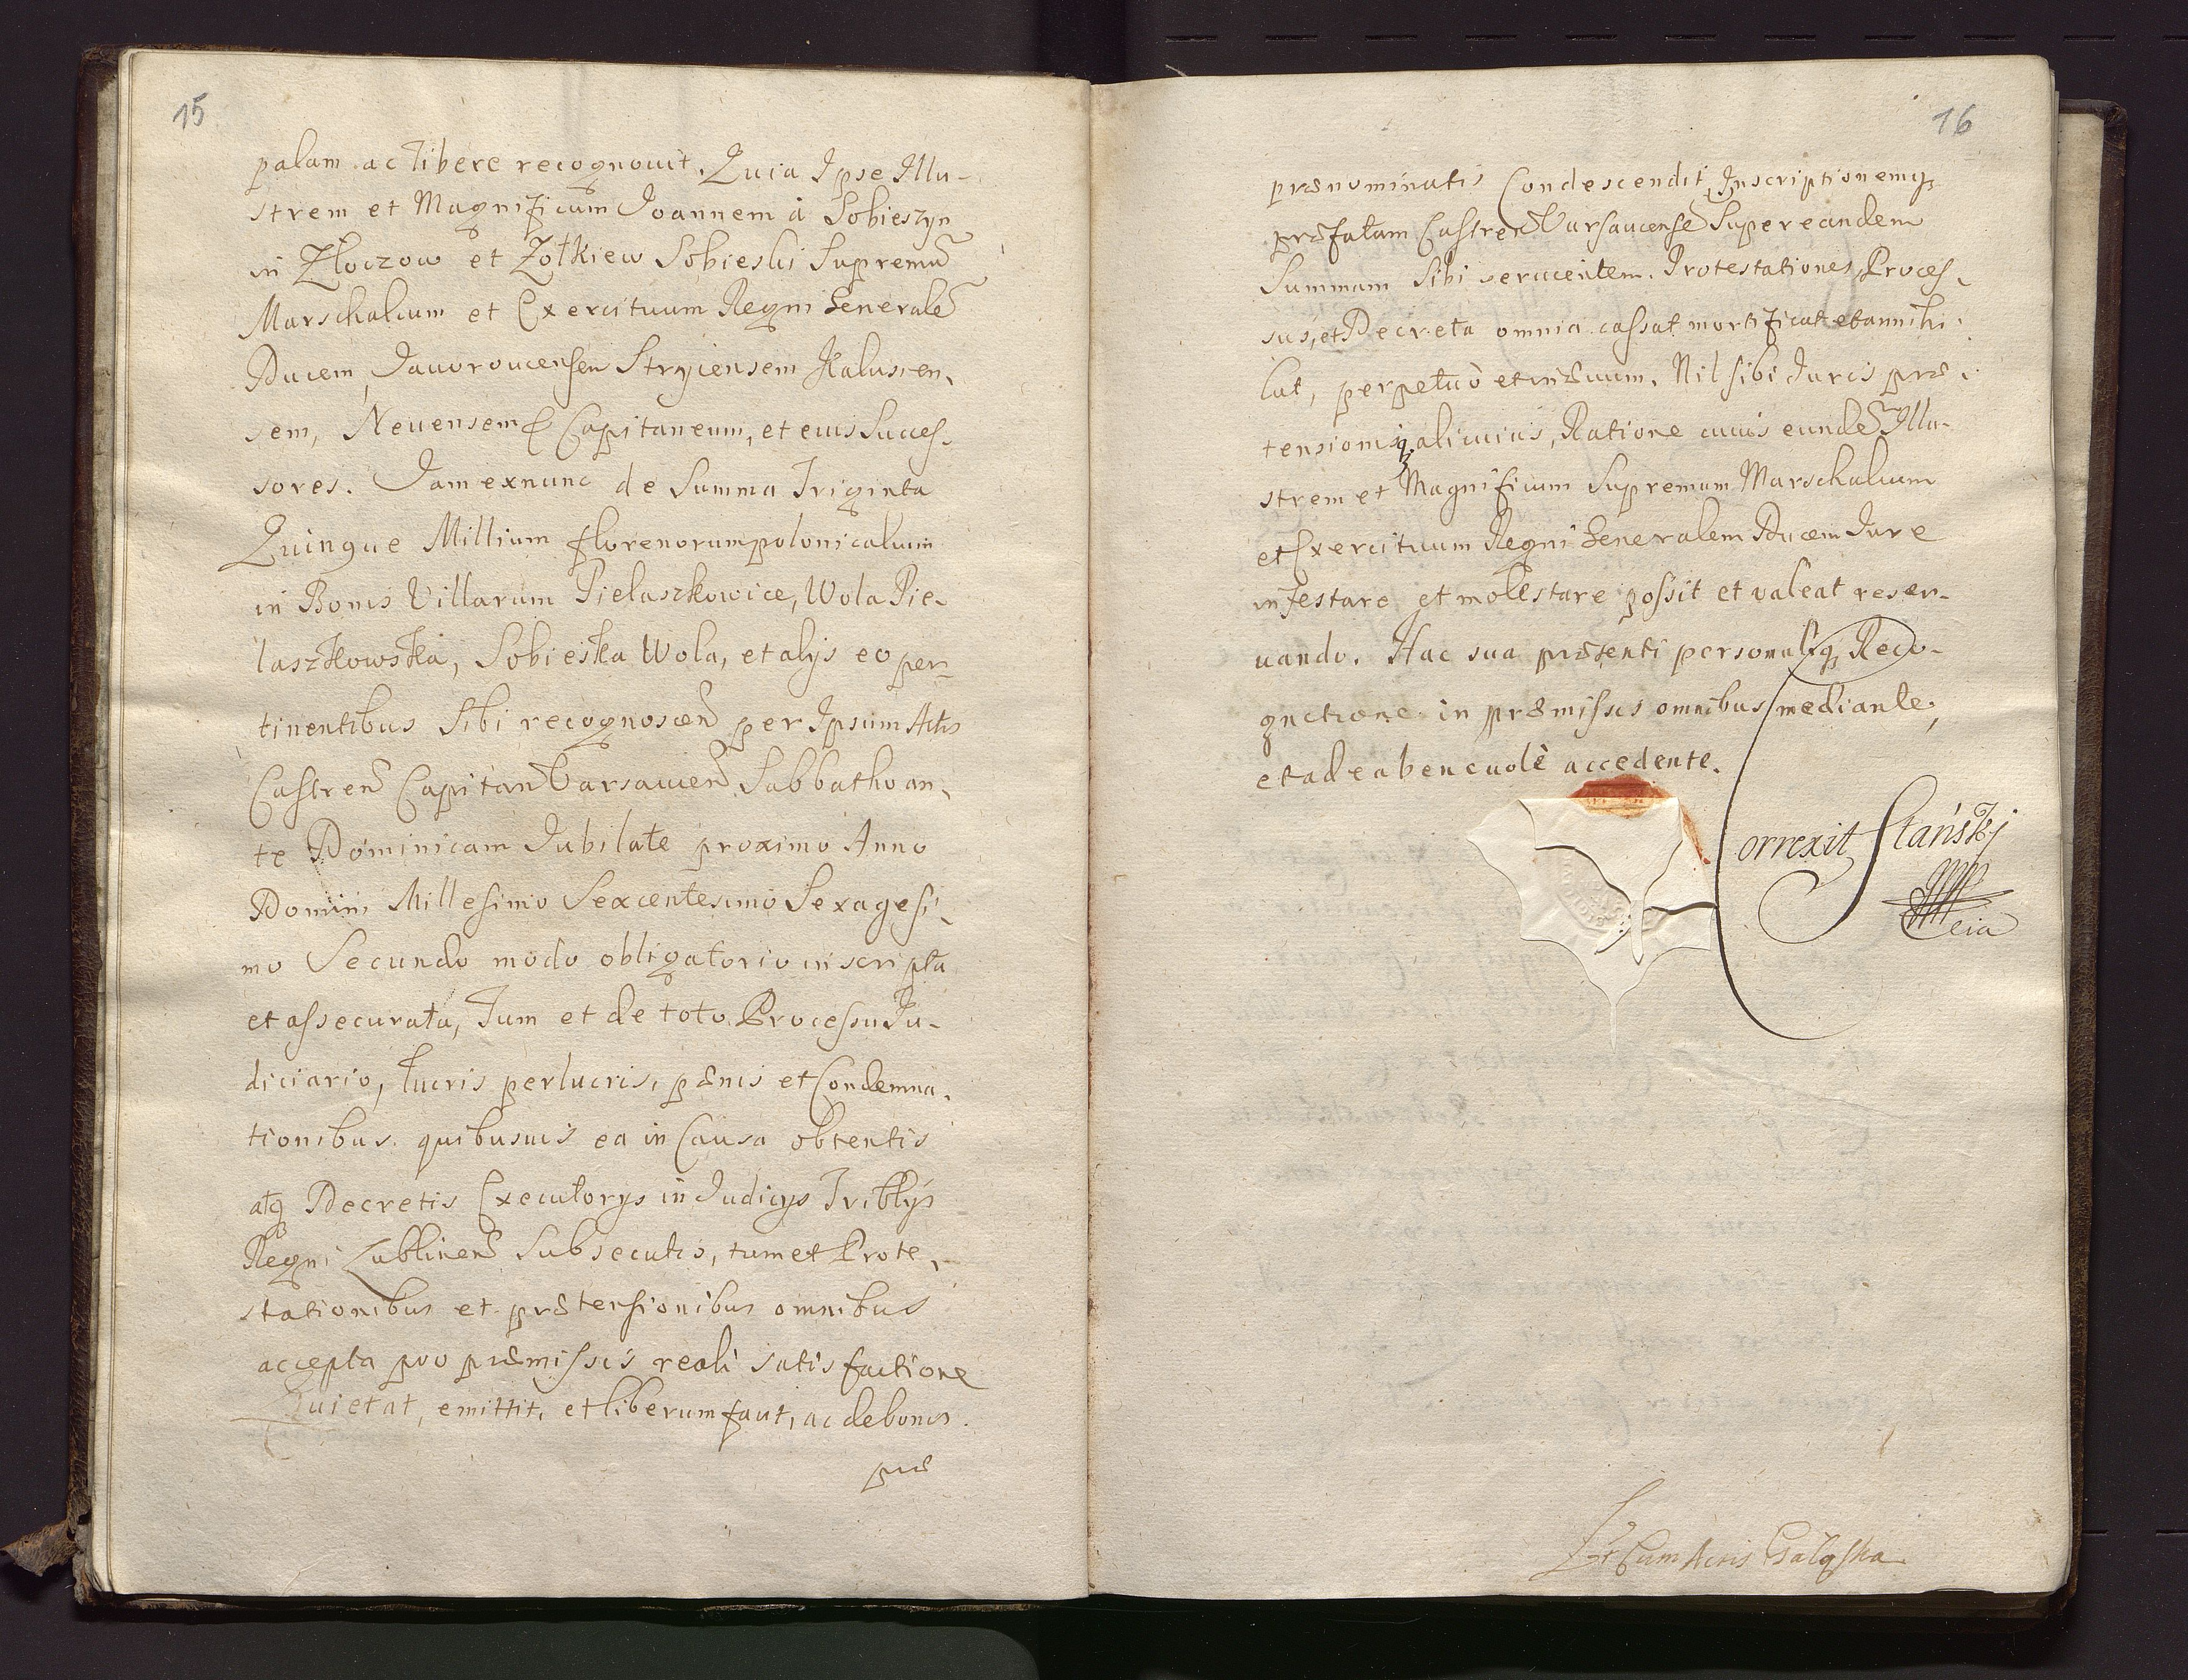 15
palam ac libere recognouit. Quia Ipse Illu-
strem et Magnificum Joannem à Sobieszyn
in Złoczow et Zołkiew Sobieski Supremū
Marschalcum et Exercituum Regni Generalē
Ducem, Jauorouiensem Stryiensem Kalusien,
sem, Neuensemq Capitaneum, et eius Succes,
sores. Jam exnunc de Summa Triginta
Quinque Millium florenorum polonicalium
in Bonis Villarum Pielaszkowice, Wola Pie-
laszkowska, Sobieska Wola, et alys eo per-
tinentibus Sibi recognoscen per Ipsum Actis
Castren Capitan Varsauien Sabbatho an,
te Dominicam Jubilate proximo Anno
Domini Millesimo Sexcentesimo Sexagesi,
mo Secundo modo obligatorio inscripta
et assecurata, Tum et de toto Processu Ju-
diciario, lucris perlucris, pænis et Condemna,
tionibus quibusuis ea in Causa obtentis
atq Decretis Executorys in Judicys Triblijs
Regni Lublinen Subsecutis, tum et Prote,
stationibus et prætensionibus omnibus
accepta pro præmissis reali satisfactione
Quietat, emittit, et liberum facit, ac de bonis
præ
16
prænominatis Condescendit, Inscriptionemq
præfatam Castren Varsauiense Super eandem
Summam Sibi seruientem. Protestationes Proces,
sus, et Decreta omnia cassat mortificat et annihi,
lat, perpetuò et in æuum. Nil sibi Juris præ,
tensioniq alicuius, Ratione cuius eundē Illu-
strem et Magnificum Supremum Marschalcum
et Exercituum Regni Generalem Ducem Jure
infestare et molestare possit et valeat reser-
uando. Hac sua præsenti personaliq Reco-
gnitione in præmissis omnibus mediante,
et ad ea beneuolè accedente.
Correxit Stański
Lēt Cum Actis Gałęska